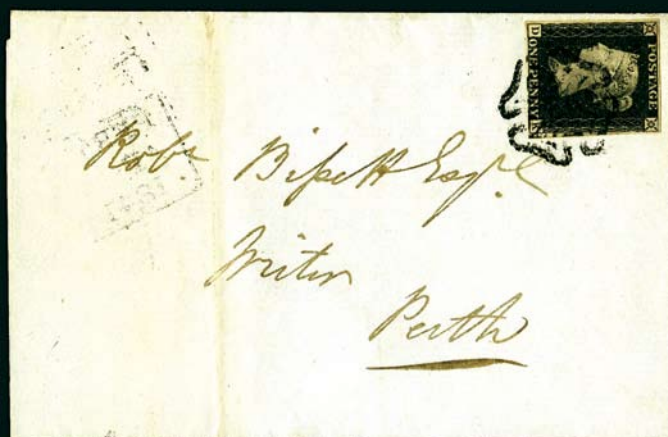 POSTAGE
D ONE PENNY L
Robt. Bissett Esqre
Writer
Perth